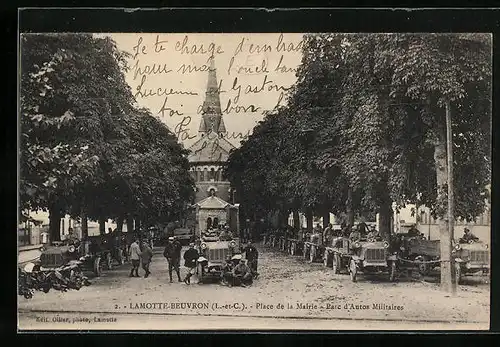 Je te charge d'embra
pour moi boucle
Lucienne Gaston
toi a un bon
2. - LAMOTTE-BEUVRON (L.-et-C.). - Place de la Mairie - Parc d'Autos Militaires
Edit. Ollier, photo, Lamotte